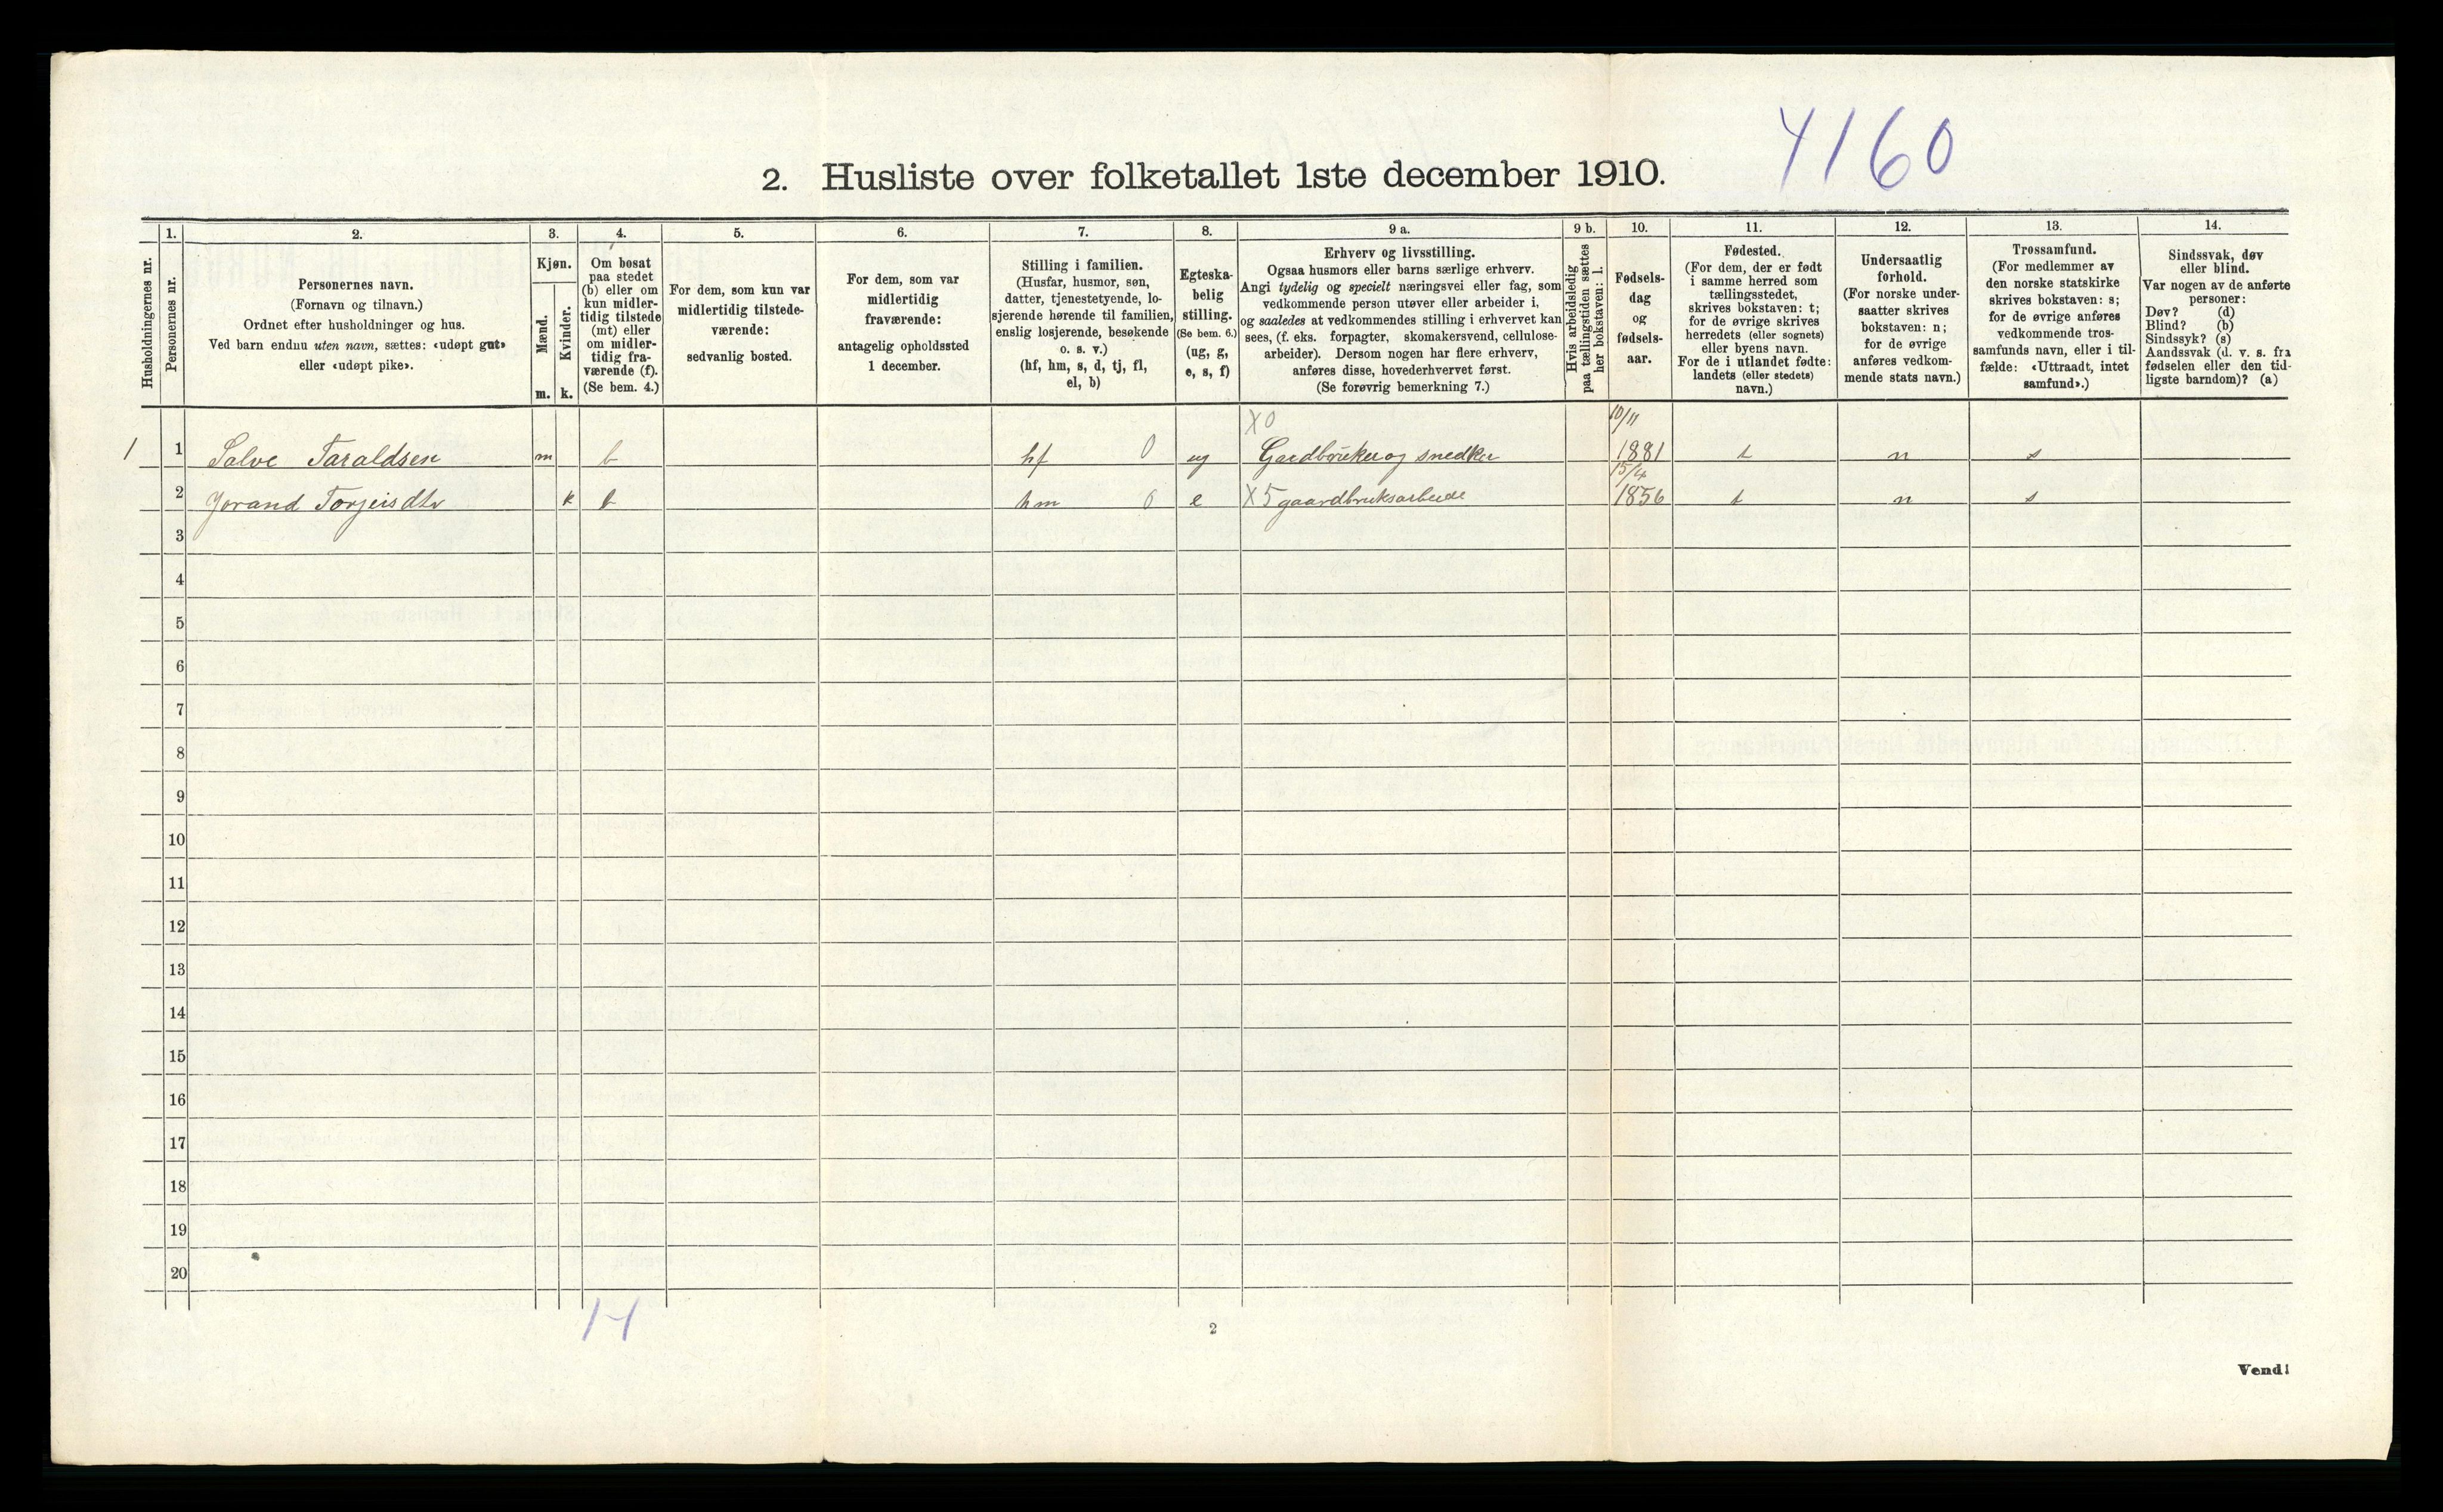 4160
2. Husliste over folketallet 1ste december 1910.
Husholdningernes nr.
1.
Personernes nr.
2.
Personernes navn.
(Fornavn og tilnavn.)
Ordnet efter husholdninger og hus.
Ved barn endnu uten navn, sættes: «udøpt gut»
eller «udøpt pike».
3.
Kjøn.
Mænd.
Kvinder.
m. k.
4.
Om bosat
paa stedet
(b) eller om
kun midler-
tidig tilstede
(mt) eller
om midler-
tidig fra-
værende (f).
(Se bem. 4.)
5.
For dem, som kun var
midlertidig tilstede-
værende:
sedvanlig bosted.
6.
For dem, som var
midlertidig
fraværende:
antagelig opholdssted
1 december.
7.
Stilling i familien.
(Husfar, husmor, søn,
datter, tjenestetyende, lo-
sjerende hørende til familien,
enslig losjerende, besøkende
o. s. v.)
(hf, hm, s, d, tj, fl,
el, b)
8.
Egteska-
belig
stilling.
(Se bem. 6.)
(ug, g,
e, s, f)
9 a.
Erhverv og livsstilling.
Ogsaa husmors eller barns særlige erhverv.
Angi tydelig og specielt næringsvei eller fag, som
vedkommende person utøver eller arbeider i,
og saaledes at vedkommendes stilling i erhvervet kan
sees, (f. eks. forpagter, skomakersvend, cellulose-
arbeider). Dersom nogen har flere erhverv,
anføres disse, hovederhvervet først.
(Se forøvrig bemerkning 7.)
9 b.
Hvis arbeidsledig
paa tællingstiden sættes
her bokstaven: l.
10.
Fødsels-
dag
og
fødsels-
aar.
11.
Fødested.
(For dem, der er født
i samme herred som
tællingsstedet,
skrives bokstaven: t;
for de øvrige skrives
herredets (eller sognets)
eller byens navn.
For de i utlandet fødte:
landets (eller stedets)
navn.)
12.
Undersaatlig
forhold.
(For norske under-
saatter skrives
bokstaven: n;
for de øvrige
anføres vedkom-
mende stats navn.)
13.
Trossamfund.
(For medlemmer av
den norske statskirke
skrives bokstaven: s;
for de øvrige anføres
vedkommende tros-
samfunds navn, eller i til-
fælde: «Uttraadt, intet
samfund».)
14.
Sindssvak, døv
eller blind.
Var nogen av de anførte
personer:
Døv? (d)
Blind? (b)
Sindssyk? (s)
Aandssvak (d. v. s. fra
fødselen eller den tid-
ligste barndom)? (a)
X0 10/11
1 1 Salve Taraldsen m b hf 0 ug Gardbruker og snedker 1881 t n s
15/4
2 Jorand Torjeisdtr k b hm 0 e X5 gaardbruksarbeide 1856 t n s
3
4
5
6
7
8
9
10
11
12
13
14
15
16
17
18
19
20
2
Vend!